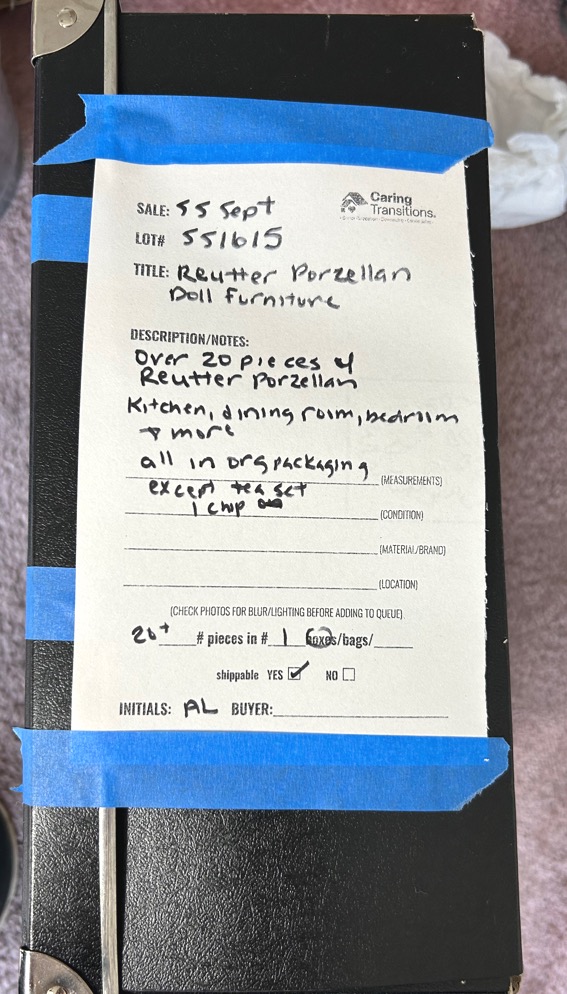 SALE: 55 Sept
Caring
Transitions
LOT# 551615
TITLE: Reutter Porzellan
Doll Furniture
DESCRIPTION/NOTES:
Over 20 pieces of
Reutter Porzellan
Kitchen, dining room, bedroom
+ more
all in org packaging
(MEASUREMENTS)
except tea set
1 chip
(CONDITION)
(MATERIAL/BRAND)
(LOCATION)
(CHECK PHOTOS FOR BLUR/LIGHTING BEFORE ADDING TO QUEUE)
20+ # pieces in # 1 boxes/bags/
shippable YES ☑ NO ☐
INITIALS: AL BUYER: